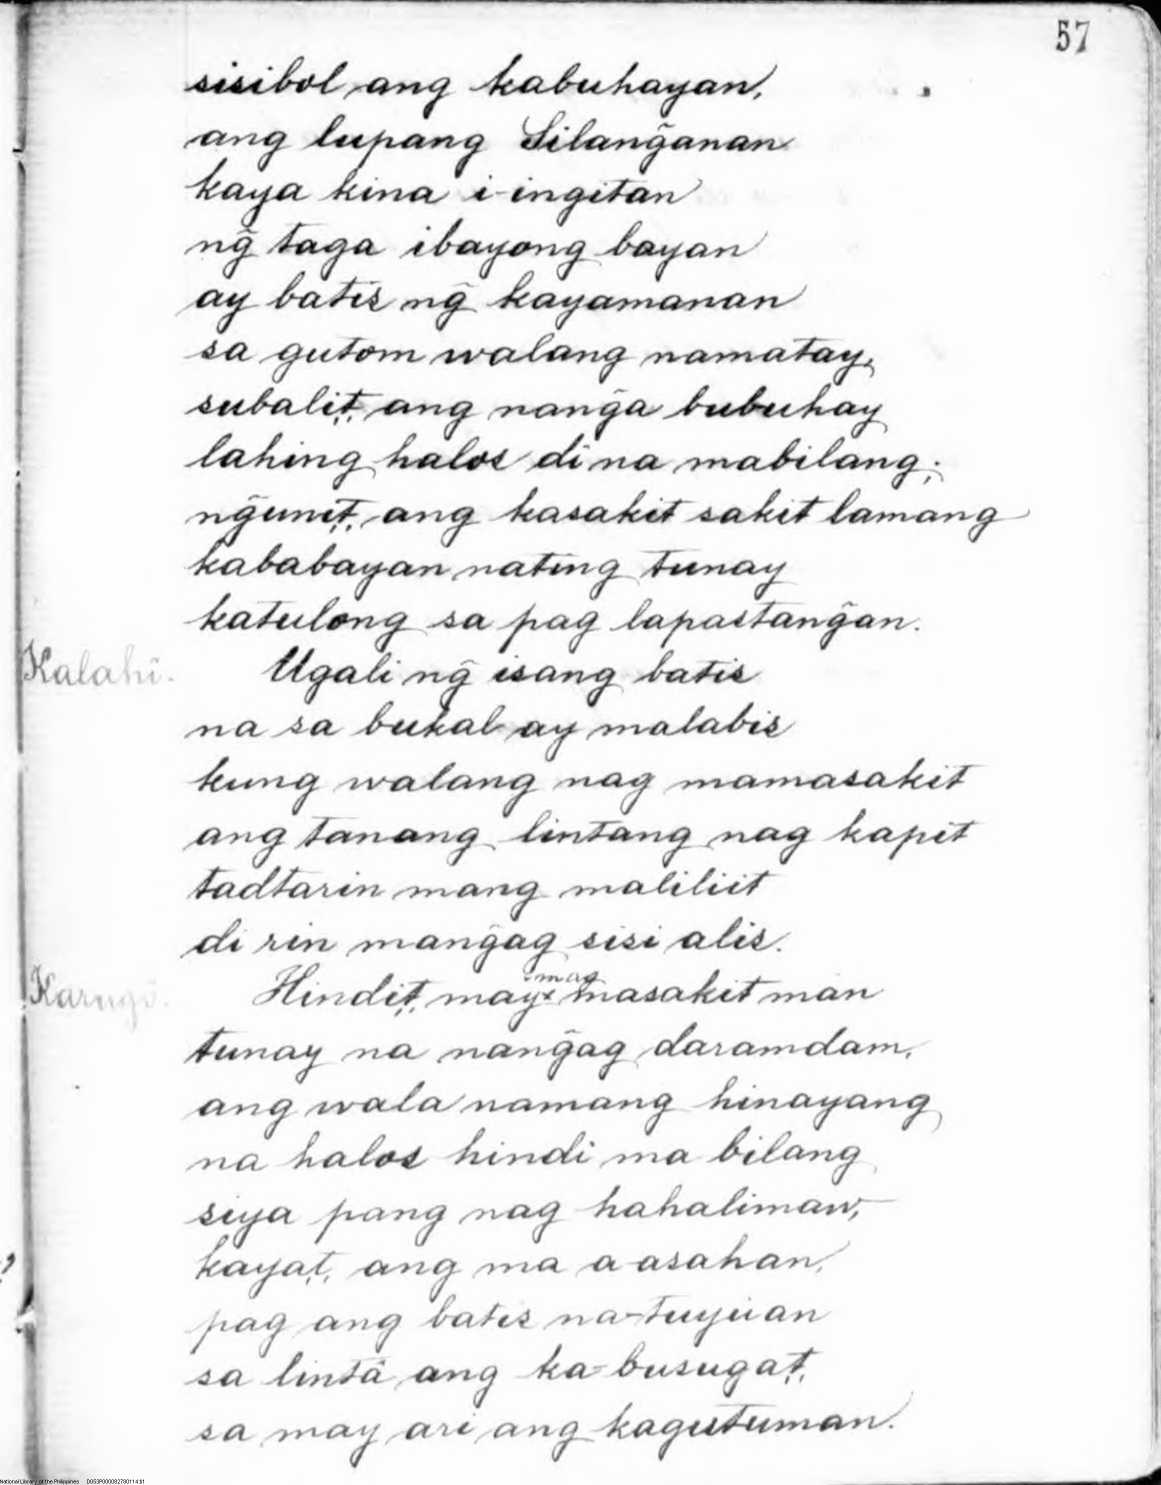 57
sisibol ang kabuhayan,
ang lupang Silang̃anan
kaya kina i-ingitan
ng̃ taga ibayong bayan
ay batis ng̃ kayamanan
sa gutom walang namatay,
subalit,, ang nang̃a bubuhay
lahing halos di na mabilang;
ng̃unit,, ang kasakit sakit lamang
kababayan nating tunay
katulong sa pag lapastang̃an.
Kalahi. Ugali ng̃ isang batis
na sa bukal ay malabis
kung walang nag mamasakit
ang tanang lintang nag kapit
tadtarin mang maliliit
di rin mang̃ag sisi alis.
mag
Hindit,, may× masakit man
tunay na nang̃ag daramdam,
ang wala namang hinayang
na halos hindi ma bilang
siya pang nag hahalimaw,
kayat,, ang ma a-asahan,
pag ang batis na-tuyuan
sa lintâ ang ka-busugat,,
sa may ari ang kagutuman.
National Library of the Philippines